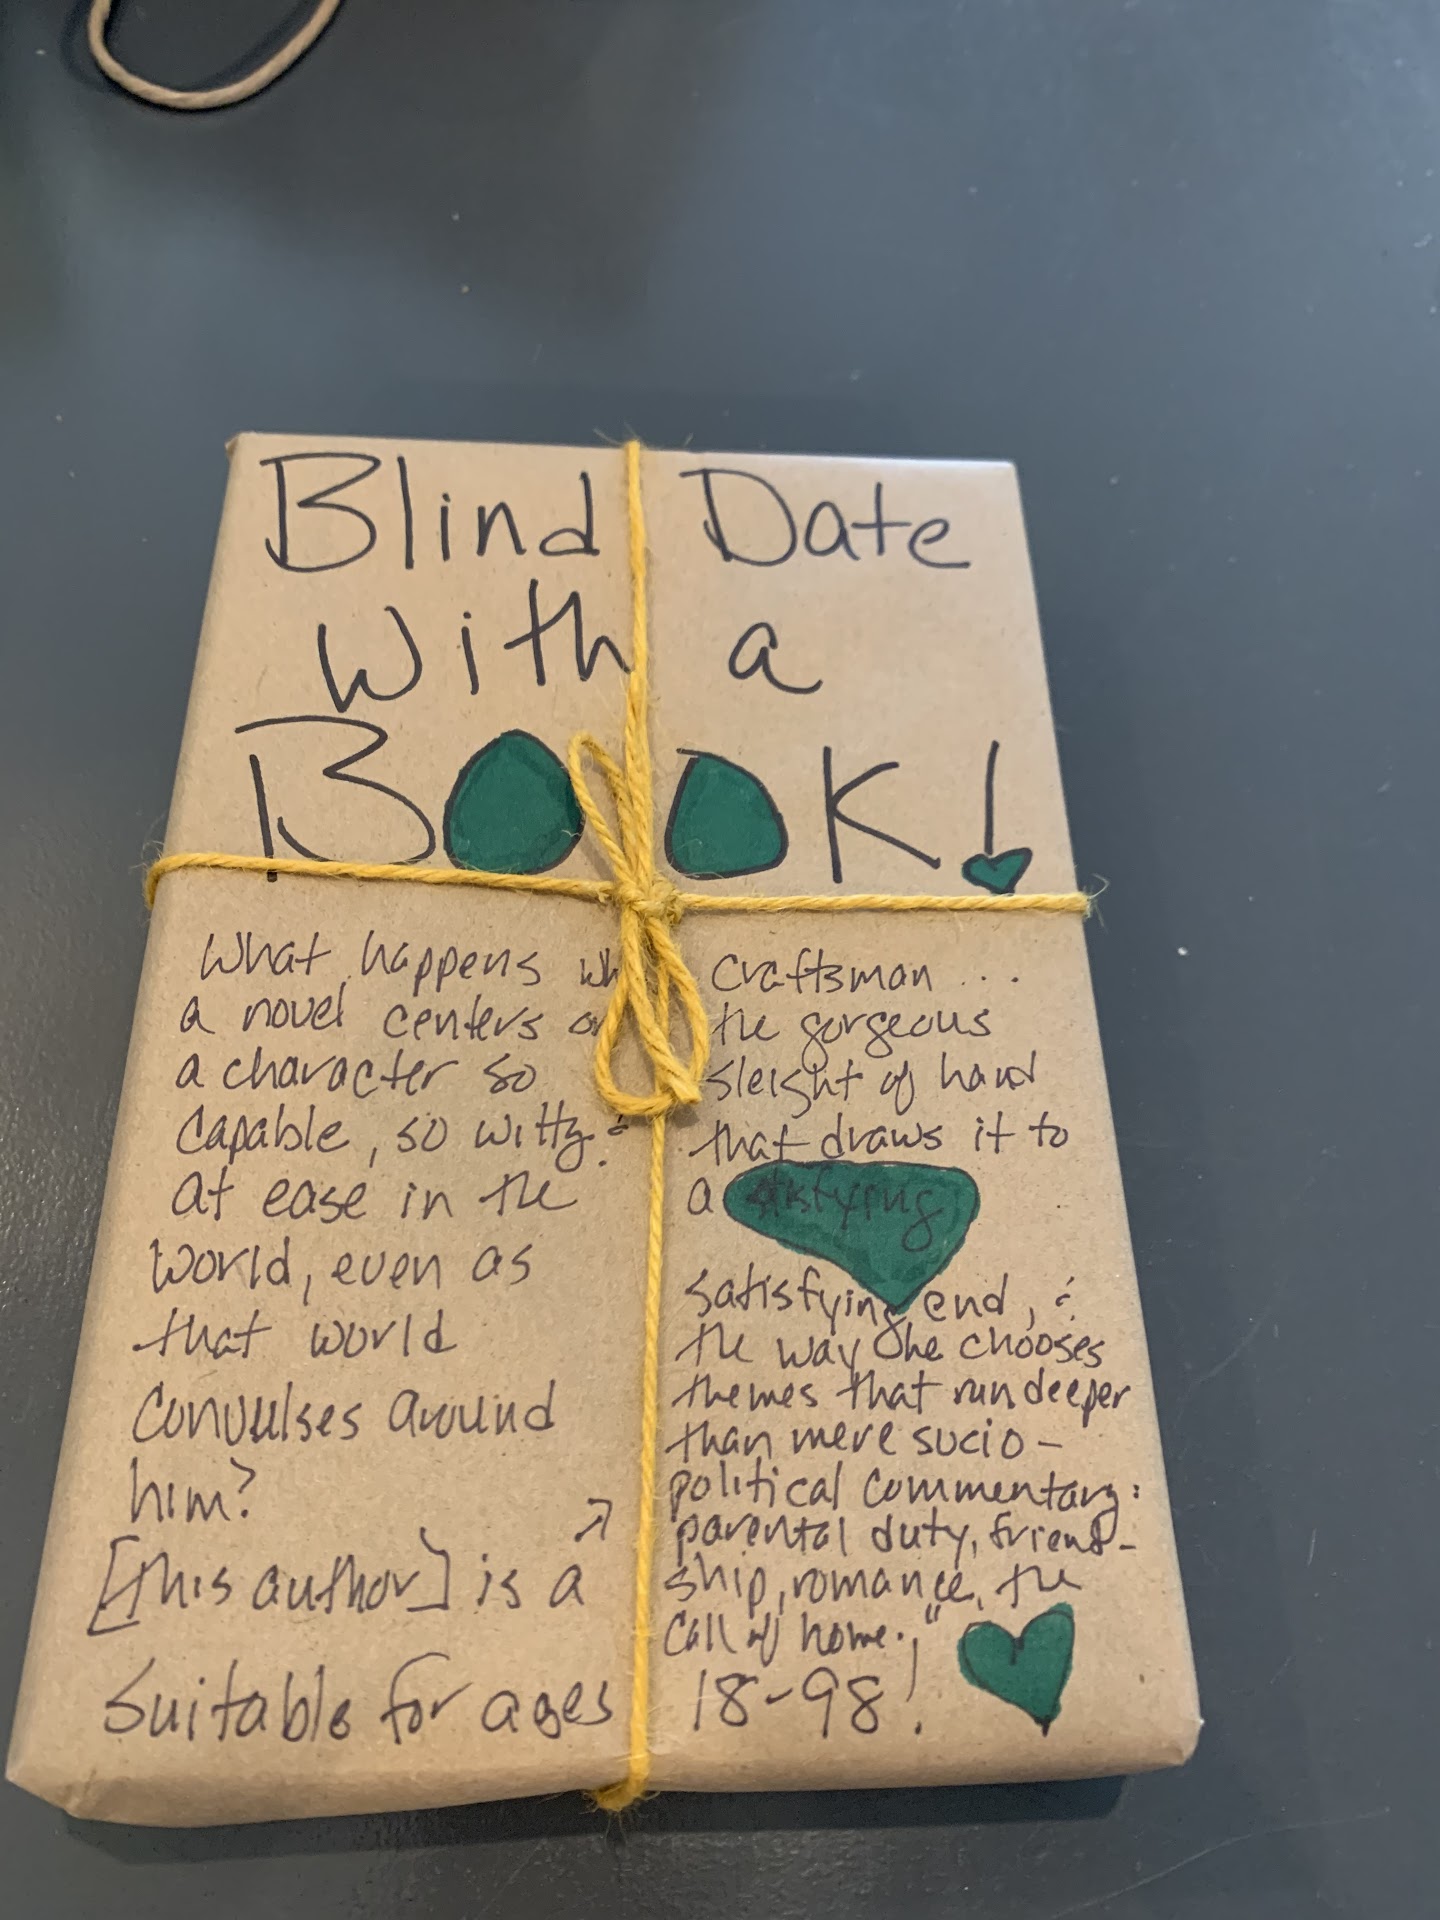 Blind Date
with a
BOOK!
What happens wh
a novel centers on
a character so
capable, so witty &
at ease in the
world, even as
that world
convulses around
him?
[this author] is a
craftsman...
the gorgeous
sleight of hand
that draws it to
a
satisfying end, &
the way he chooses
themes that run deeper
than mere socio-
political commentary:
parental duty, friend-
ship, romance, the
call of home."
Suitable for ages 18-98!